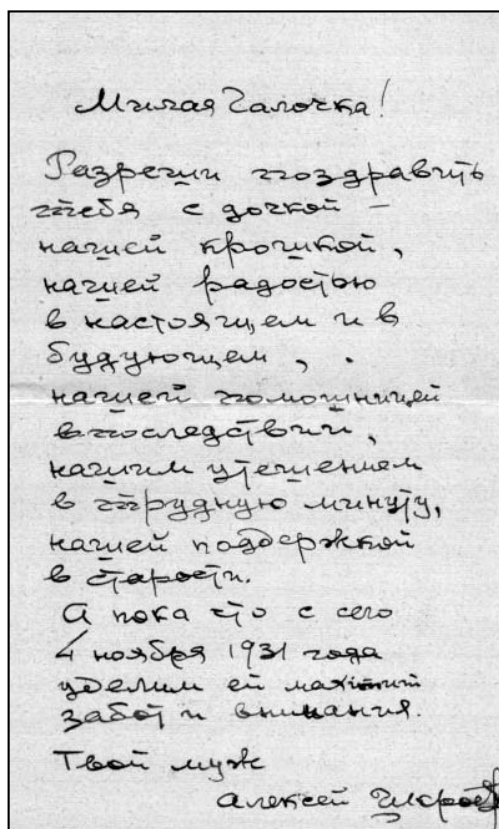 Милая Галочка!
Разреши поздравить
тебя с дочкой –
нашей крошкой,
нашей радостью
в настоящем и в
будующем,
нашей помошницей
впоследствии,
нашим утешением
в трудную минуту,
нашей поддержкой
в старости.
А пока что с сего
4 ноября 1931 года
уделим ей maximum
забот и внимания.
Твой муж
Алексей